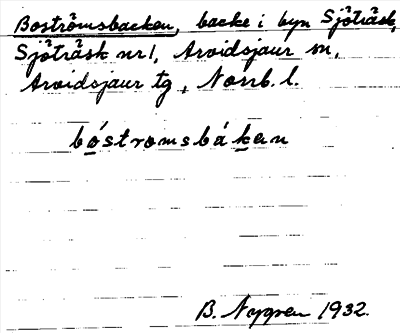 Boströmsbacken, backe i byn Sjöträsk,
Sjöträsk nr 1, Arvidsjaur sn,
Arvidsjaur tg, Norrb. l.
bóstromsbákan
B. Nygren 1932.